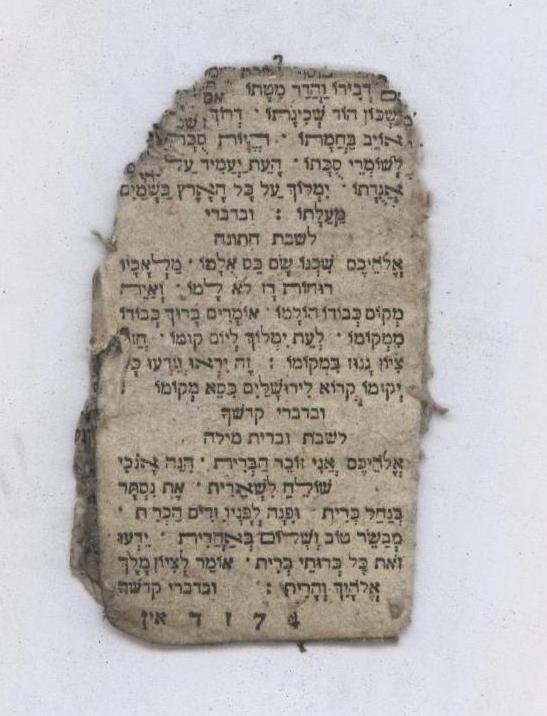 דְבִירוֹ וַהֲדַר מִטָּתוֹ
שִׁכּוֹן הוֹד שְׁכִינָתוֹ · דְרוֹךְ
אוֹיֵב בְּחֲמָתוֹ · סֻכַּת
לְשׁוֹמְרֵי סֻכָּתוֹ · הָעֵת יַעֲמִיד עַל
אֲגֻדָּתוֹ · יִמְלוֹךְ עַל כָּל הָאָרֶץ בַּשָּׁמַיִם
מַעֲלָתוֹ : ובדברי
לשבת חתונה
אֱלֹהֵיכֶם שִׁכְנוֹ שָׂם כַּס אֵלְמוֹ · מַלְאָכָיו
רוּחוֹת רָז לֹא לָמוֹ · וְאַיֵּה
מְקוֹם כְּבוֹדוֹ הוֹלָמוֹ · אוֹמְרִים בָּרוּךְ כְּבוֹדוֹ
מִמְּקוֹמוֹ · לְעֵת יִמְלוֹךְ לְיוֹם קוּמוֹ · חֲזוֹן
צִיּוֹן גָּנוּז בִּמְקוֹמוֹ : זֶה יִרְאוּ וְיֵדְעוּ כָּל
יְקוּמוֹ קְרוֹא לִירוּשָׁלַיִם כִּסֵּא מְקוֹמוֹ :
ובדברי קדשך
לשבת וברית מילה
אֱלֹהֵיכֶם אֲנִי זוֹכֵר הַבְּרִית · הִנֵּה אָנֹכִי
שׁוֹלֵחַ לִשְׁאֵרִית · אֶת נִסְתָּר
בְּנַחַל כְּרִית · וּפִנָּה לְפָנָיו וּדִים הַכְרֵת ·
מְבַשֵּׂר טוֹב וְשָׁלוֹם בְּאַחֲרִית · יֵדְעוּ
זֹאת כָּל כְּרוּתֵי בְּרִית · אוֹמֵר לְצִיּוֹן מָלַךְ
אֱלֹהָיִךְ וְהָרִית : ובדברי קדשך
ז ד אין